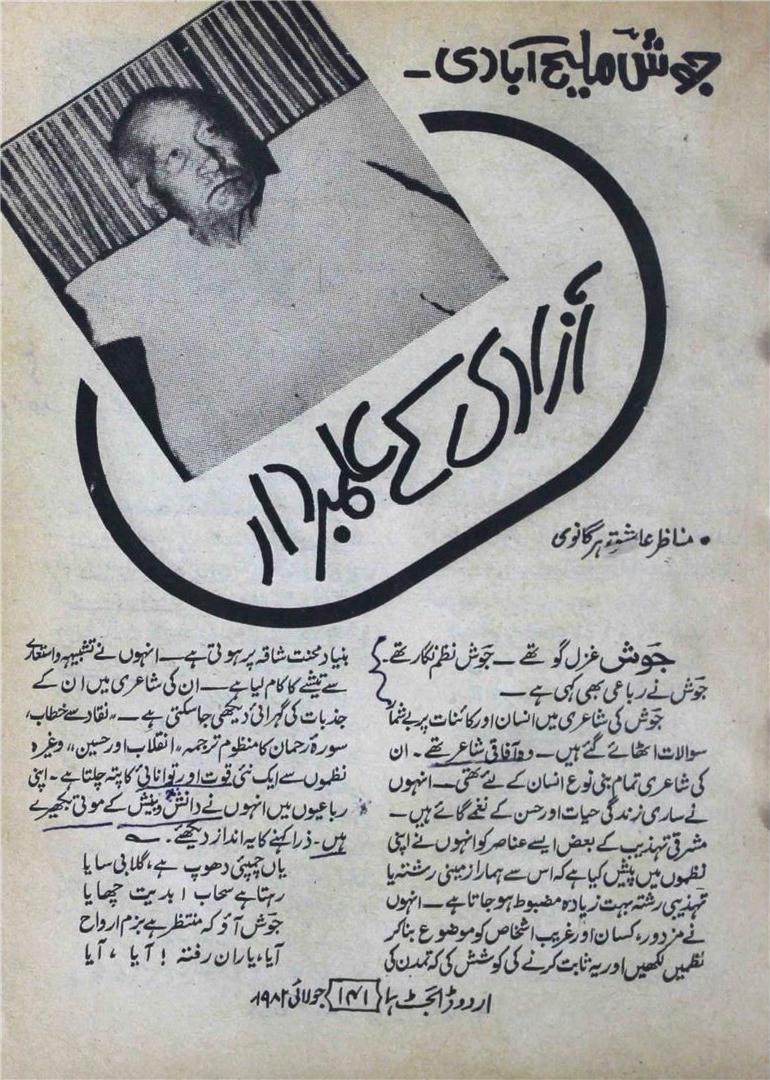 جوش ملیح آبادی ــ
آزادی کے علمبردار
• مناظر عاشق ہرگانوی
جوش غزل گو تھے ــ جوش نظم نگار تھے
جوش نے رباعی بھی کہی ہے ــ
جوش کی شاعری میں انسان اور کائنات پر بے شمار
سوالات اٹھائے گئے ہیں ــ وہ آفاقی شاعر تھے ۔ ان
کی شاعری تمام بنی نوع انسان کے لئے تھی ــ انہوں
نے ساری زندگی حیات اور حسن کے نغمے گائے ہیں ــ
مشرقی تہذیب کے بعض ایسے عناصر کو انہوں نے اپنی
نظموں میں پیش کیا ہے کہ اس سے ہمارا زمینی رشتہ یا
تہذیبی رشتہ بہت زیادہ مضبوط ہو جاتا ہے ــ انہوں
نے مزدور، کسان اور غریب اشخاص کو موضوع بنا کر
نظمیں لکھیں اور یہ ثابت کرنے کی کوشش کی کہ تمدن کی
بنیاد محنت شاقہ پر ہوتی ہے ــ انہوں نے تشبیہہ و استعارے
سے تیشے کا کام لیا ہے ــ ان کی شاعری میں ان کے
جذبات کی گہرائی دیکھی جا سکتی ہے ــ "نقاد سے خطاب،
سورۂ رحمان کا منظوم ترجمہ، "انقلاب اور حسین" وغیرہ
نظموں سے ایک نئی قوت اور توانائی کا پتہ چلتا ہے ۔ اپنی
رباعیوں میں انہوں نے دانش و بینش کے موتی بکھیرے
ہیں ۔ ذرا کہنے کا یہ انداز دیکھئے ۔
یاں چمپئی دھوپ ہے، گلابی سایا
رہتا ہے سحاب ابدیت چھایا
جوش آؤ کہ منتظر ہے بزم ارواح
آیا، یاران رفتہ ! آیا ، آیا
اردو ڈائجسٹ ہما ۱۴۱ جولائی ۱۹۸۲ء